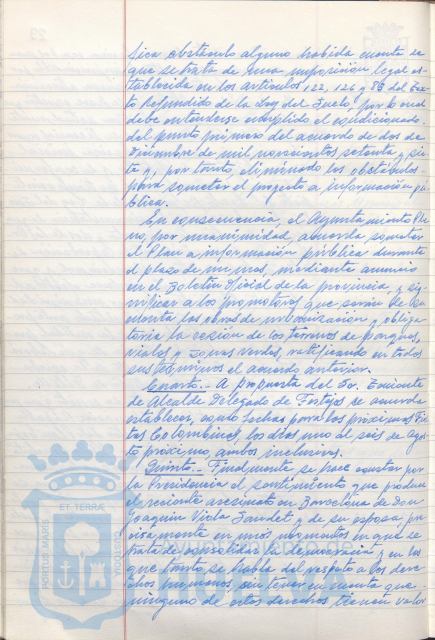 fica obstáculo alguno habida cuenta de
que se trata de una imposición legal es-
tablecida en los artículos 122, 126 y 83 del Tex-
to Refundido de la Ley del Suelo, por lo cual
debe entenderse cumplido el condicionado
del punto primero del acuerdo de dos de
Diciembre de mil novecientos setenta y sie-
te y, por tanto, eliminado los obstáculos
para someter el proyecto a información pú-
blica.
En consecuencia el Ayuntamiento Ple-
no, por unanimidad, acuerda someter
el Plan a información pública durante
el plazo de un mes, mediante anuncio
en el Boletín Oficial de la provincia y sig-
nificar a los promotores que serán de su
cuenta las obras de urbanización y obliga-
toria la cesión de los terrenos de parques,
viales y zonas verdes, ratificando en todos
sus términos el acuerdo anterior.
Cuarto.- A propuesta del Sr. Teniente
de Alcalde Delegado de Festejos se acuerda
establecer, como fechas para las próximas Fies-
tas Colombinas, los días uno al seis de agos-
to próximo, ambos inclusives.
Quinto.- Finalmente se hace constar por
la Presidencia el sentimiento que produce
el reciente asesinato en Barcelona de Don
Joaquin Viola Saudet y de su esposa, pre-
cisamente en unos momentos en que se
trata de consolidar la democracia y en los
que tanto se habla del respeto a los dere-
chos humanos, sin tener en cuenta que
ninguno de estos derechos tienen valor
PORTUS MARIS
ET TERRAE
CUSTODIA